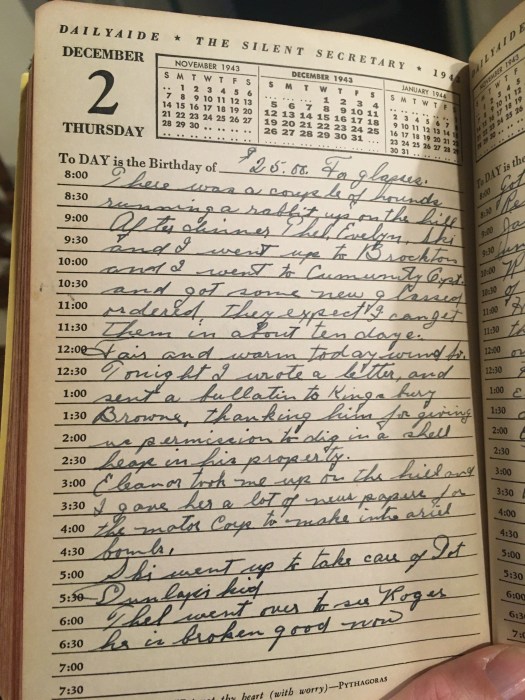 DAILYAIDE ★ THE SILENT SECRETARY ★ 194
DECEMBER
2
THURSDAY
NOVEMBER 1943
S M T W T F S
.. 1 2 3 4 5 6
7 8 9 10 11 12 13
14 15 16 17 18 19 20
21 22 23 24 25 26 27
28 29 30 .. .. .. ..
DECEMBER 1943
S M T W T F S
.. .. .. 1 2 3 4
5 6 7 8 9 10 11
12 13 14 15 16 17 18
19 20 21 22 23 24 25
26 27 28 29 30 31 ..
JANUARY 1944
S M T W T F S
.. .. .. .. .. .. 1
2 3 4 5 6 7 8
9 10 11 12 13 14 15
16 17 18 19 20 21 22
23 24 25 26 27 28 29
30 31
To DAY is the Birthday of $25.00. For glasses.
8:00 There was a couple of hounds
8:30 running a rabbit up on the hill
9:00 After dinner Thel, Evelyn, Ski
9:30 and I went up to Brockton
10:00 and I went to Cumunity Opt.
10:30 and got some new glasses
11:00 ordered, they expect I can get
11:30 them in about ten days.
12:00 Fair and warm today wind
12:30 Tonight I wrote a letter, and
1:00 sent a bullatin to Kingsbury
1:30 Browne, thanking him for giving
2:00 us permission to dig in a shell
2:30 heap in his property.
3:00 Eleanor took me up on the hill and
3:30 I gave her a lot of news papers for
4:00 the motor Corp to make into ariel
4:30 bombs.
5:00 Ski went up to take care of Dot
5:30 Dunlap's kid
6:00 Thel went over to see Roger
6:30 he is broken good now
7:00
7:30
thy heart (with worry)—PYTHAGORAS